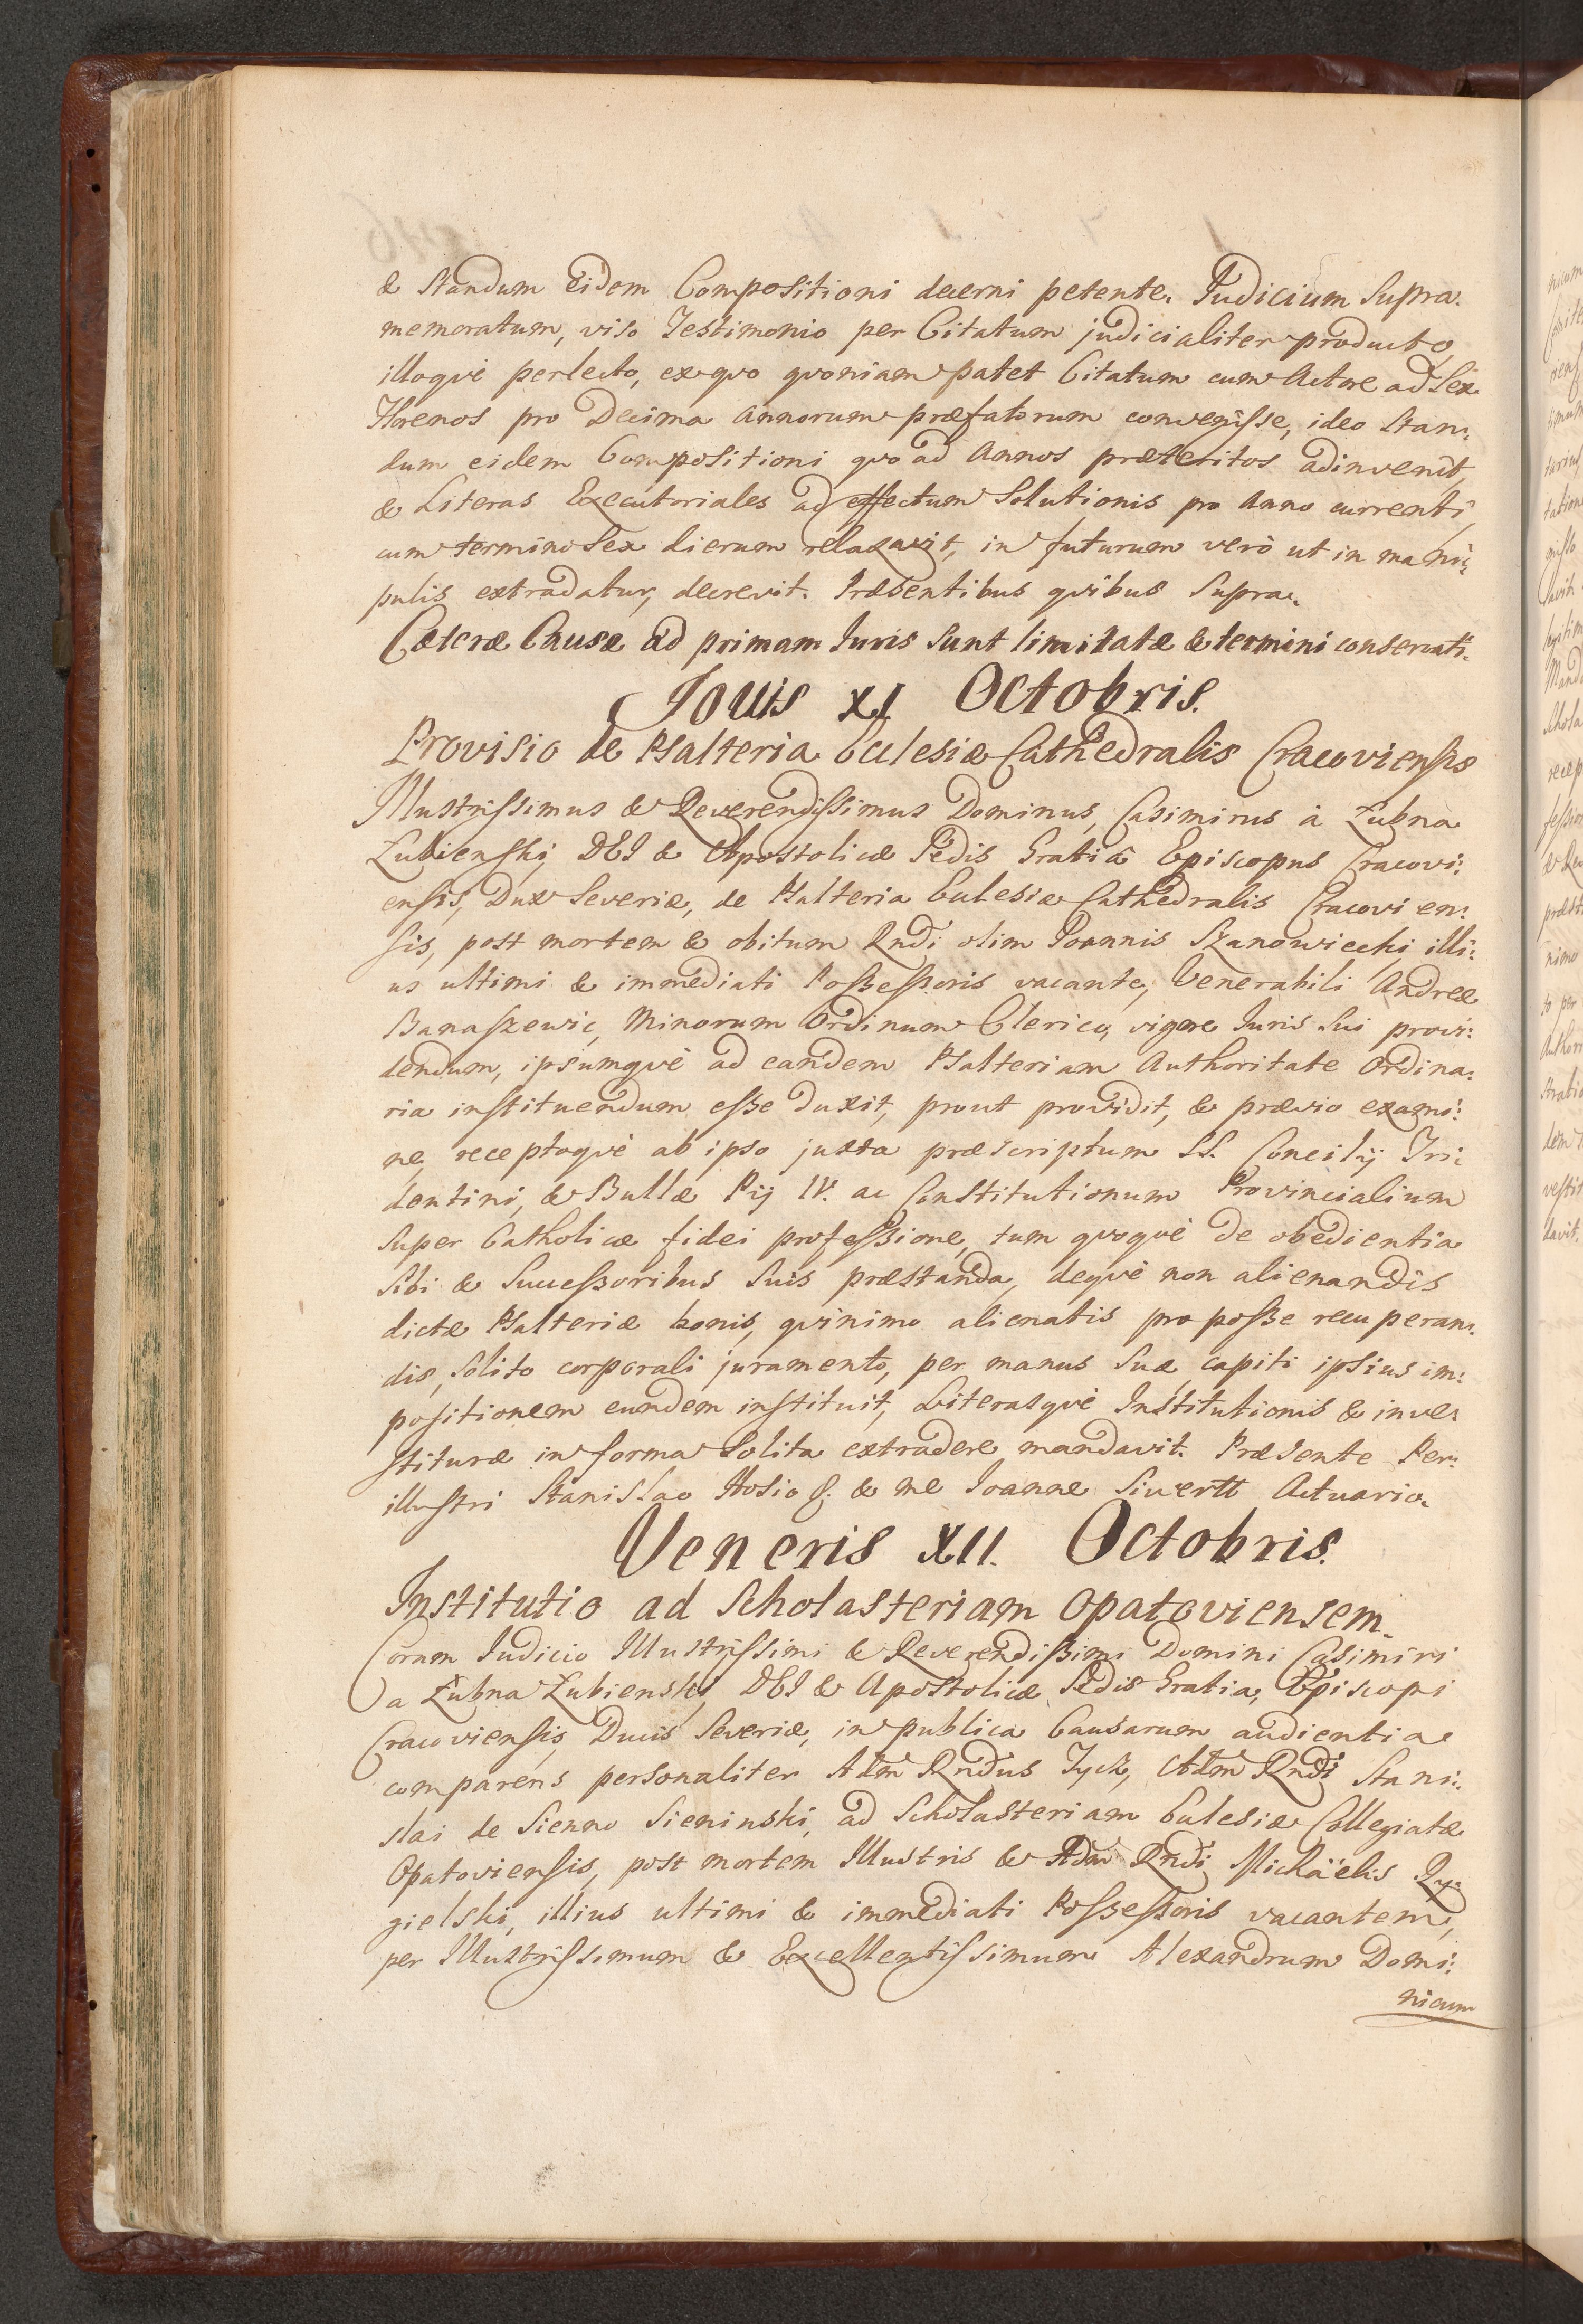 & standum eidem Compositioni decerni petente. Judicium supra:
memoratum, viso Testimonio per Citatum judicialiter producto,
illoqvè perlecto, ex qvo qvoniam patet Citatum cum Actore ad sex
florenos pro Decima Annorum præfatorum convenisse, ideo stan:
dum eidem Compositioni qvo ad Annos præteritos adinvenit,
& Literas Executoriales ad effectum Solutionis pro Anno currenti,
cum termino sex dierum relaxavit, in futurum verò ut in mani:
pulis extradatur, decrevit. Præsentibus qvibus supra.
Cæteræ Causæ ad primam Juris sunt limitatæ & termini conservati.
Jovis XI Octobris.
Provisio de Psalteria Ecclesiæ Cathedralis Cracoviensis
Illustrissimus & Reverendissimus Dominus, Casimirus à Łubna
Łubienskj DEI & Apostolicæ Sedis Gratiâ Episcopus Cracovi:
ensis, Dux Severiæ, de Psalteria Ecclesiæ Cathedralis Cracovien:
sis, post mortem & obitum Rndi olim Joannis Szanowiecki illi:
us ultimi & immediati Possessoris vacante, Venerabili Andreæ
Banaszewic, Minorum Ordinum Clerico, vigore Juris sui provi:
dendum, ipsumqvè ad eandem Psalteriam Authoritate Ordina:
ria instituendum esse duxit, prout providit, & prævio exami:
ne, receptoqvè ab ipso juxta præscriptum SS. Concilij Tri:
dentini, & Bullæ Pij IV. ac Constitutionum Provincialium
super Catholicæ fidei professione, tum qvoqvè de obedientia
sibi & Successoribus suis præstanda, deqvè non alienandis
dictæ Psalteriæ bonis, qvinimo alienatis pro posse recuperan:
dis, solito corporali juramento, per manus suæ capiti ipsius im:
positionem eundem instituit, Literasqvè Institutionis & inve:
stituræ in forma solita extradere mandavit. Præsente Per:
illustri Stanislao Hosio S. & me Joanne Siwertt Actuario.
Veneris XII. Octobris.
Institutio ad Scholasteriam Opatoviensem.
Coram Judicio Illustrissimi & Reverendissimi Domini Casimiri
a Łubna Łubienskj DEI & Apostolicæ Sedis Gratia, Episcopi
Cracoviensis, Ducis Severiæ, in publica Causarum audientia
comparens personaliter Adm Rndus Tyck, Adm Rndi Stani:
slai de Sienno Sieninski, ad Scholasteriam Ecclesiæ Collegiatæ
Opatoviensis, post mortem Illustris & Adm Rndi Michaëlis Ry:
gielski, illius ultimi & immediati Possessoris vacantem,
per Illustrissimum & Excellentissimum Alexandrum Domi:
nicum